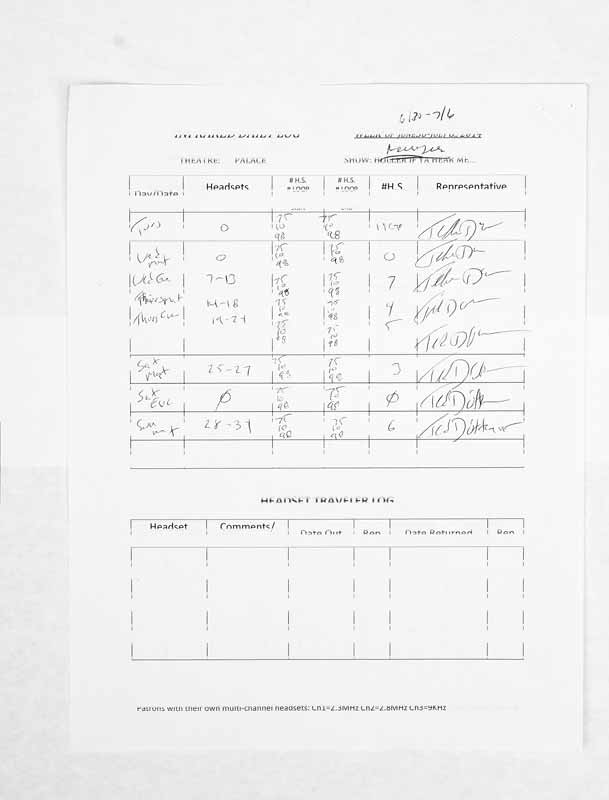 6/30-7/6
INFRARED DAILY LOG WEEK OF JUNE30-JULY 6, 2014
THEATRE: PALACE SHOW: HOLLER IF YA HEAR ME...
Day/Date Headsets # H.S. # LOOP # H.S. # LOOP #H.S. Representative
Tues 0 75 10 98 75 10 98
Wed mat 0 75 10 98 75 10 98 0
Wed Eve 7-13 75 10 98 75 10 98 7
Thurs mat 14-18 75 10 98 75 10 98 4
Thurs Eve 19-24 75 10 98 75 10 98 5
Sat mat 25-27 75 10 98 75 10 98 3
Sat Eve Ø 75 10 98 75 10 98 Ø
Sun mat 28-34 75 10 98 75 10 98 6
HEADSET TRAVELER LOG
Headset Comments/ Date Out Rep Date Returned Rep
Patrons with their own multi-channel headsets: Ch1=2.3MHz Ch2=2.8MHz Ch3=9KHz